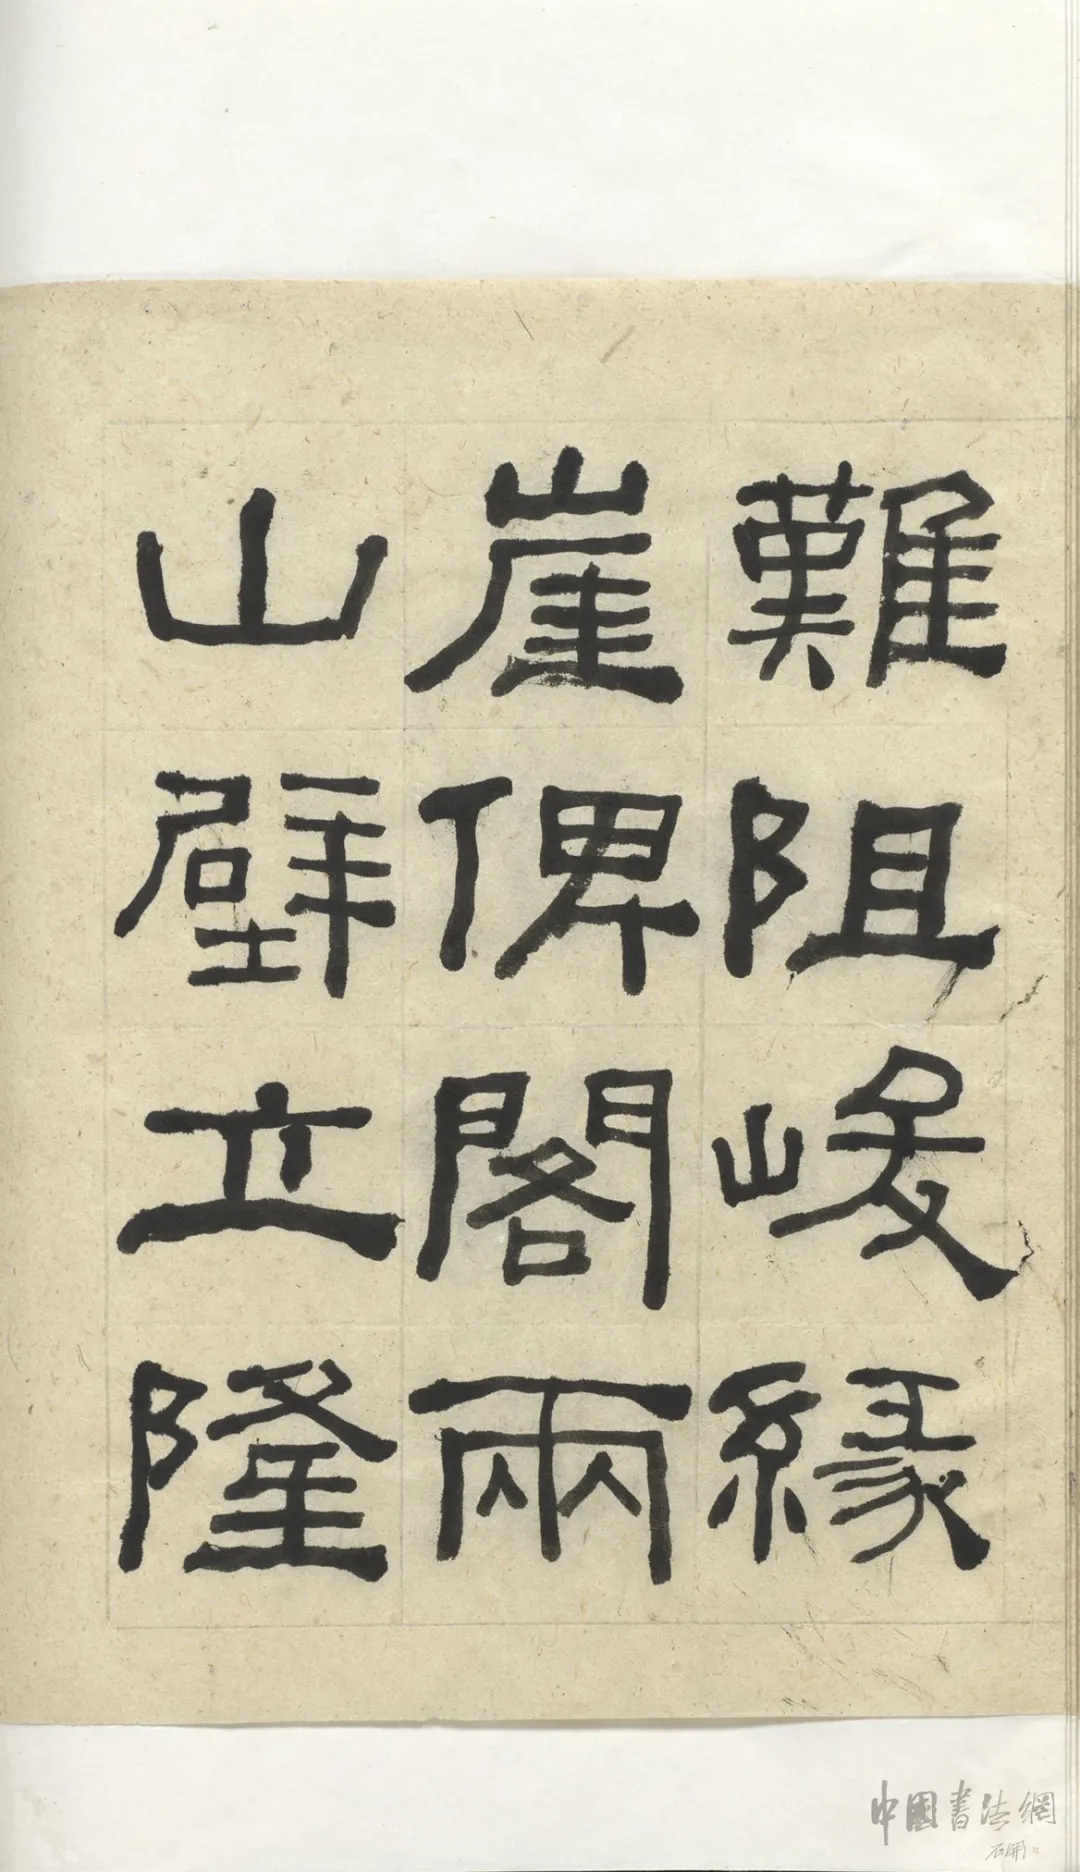 難阻峻緣
崖俾閣兩
山壁立隆
中國書法網
石開